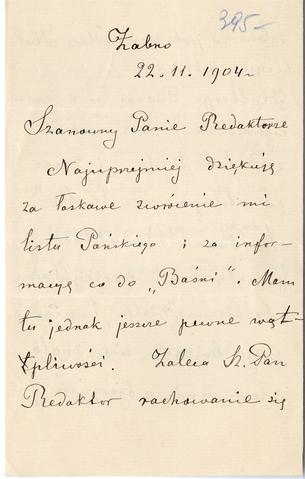 395-
Żabno
22.11.1904.
Szanowny Panie Redaktorze
Najuprzejmiej dziękuję
za łaskawe zwrócenie mi
listu Pańskiego i za infor-
macyę co do „Baśni". Mam
tu jednak jeszcze pewne wąt-
pliwości. Zaleca Sz. Pan
Redaktor rachowanie się